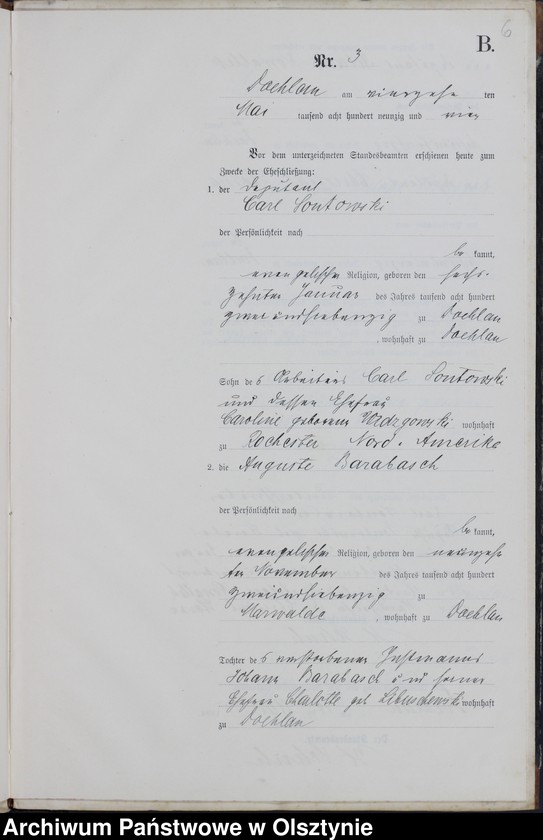 6
B.
Nr. 3
Doehlau am vierzehn ten
Mai tausend acht hundert neunzig und vier
Vor dem unterzeichneten Standesbeamten erschienen heute zum
Zwecke der Eheschließung:
1. der Deputant
Carl Sontowski
der Persönlichkeit nach
be kannt,
evangelischer Religion, geboren den sechs-
zehnten Januar des Jahres tausend acht hundert
zweiundsiebenzig zu Doehlau
, wohnhaft zu Doehlau
Sohn des Arbeiters Carl Sontowski
und dessen Ehefrau
Caroline geborene wohnhaft
zu Rochester Nord-Amerika
2. die Auguste Barabasch
der Persönlichkeit nach
be kannt,
evangelischer Religion, geboren den neunzehn
ten November des Jahres tausend acht hundert
zweiundsiebenzig zu
Marwalde , wohnhaft zu Doehlau
Tochter des verstorbenen Instmanns
Johann Barabasch und seiner
Ehefrau Charlotte geb Libuschewski wohnhaft
zu Doehlau
Archiwum Państwowe w Olsztynie